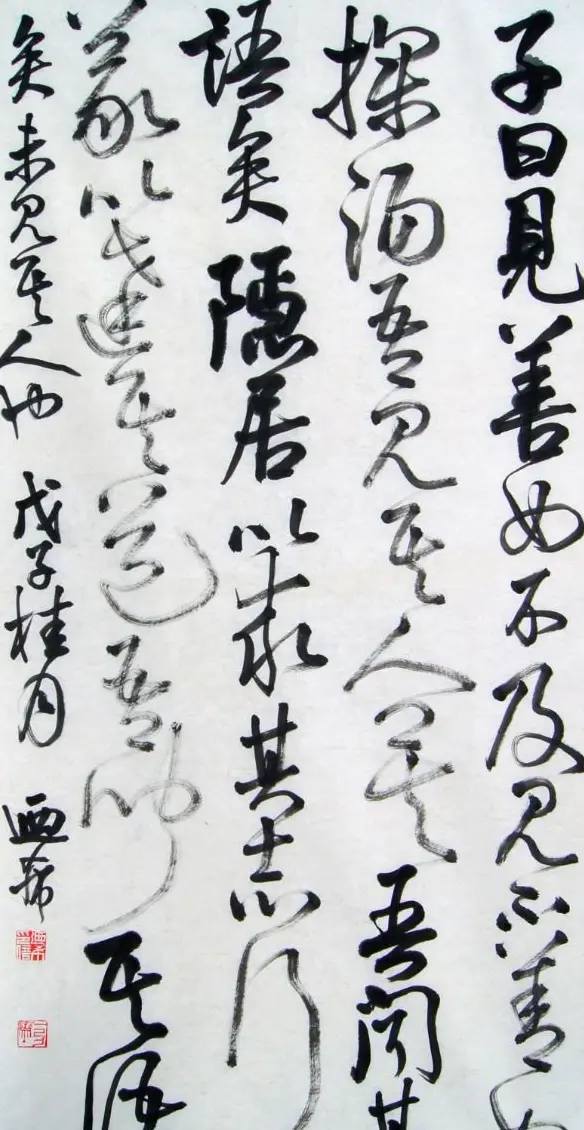 子曰見善如不及見不善如
探湯吾見其人矣吾聞其
語矣隱居以求其志行
義以達其道吾聞其語
矣未見其人也 戊子桂月